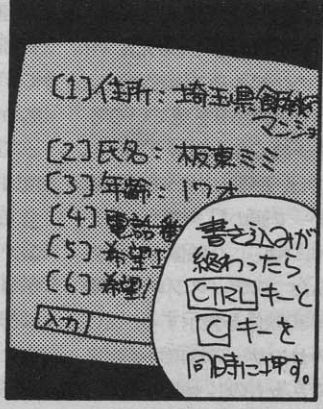 [1]住所：埼玉県飯能
マンショ
[2]氏名：板東ミミ
[3]年齢：17才
[4]電話番
[5]希望
[6]希望
入力
書き込みが
終わったら
CTRLキーと
Cキーを
同時に押す。